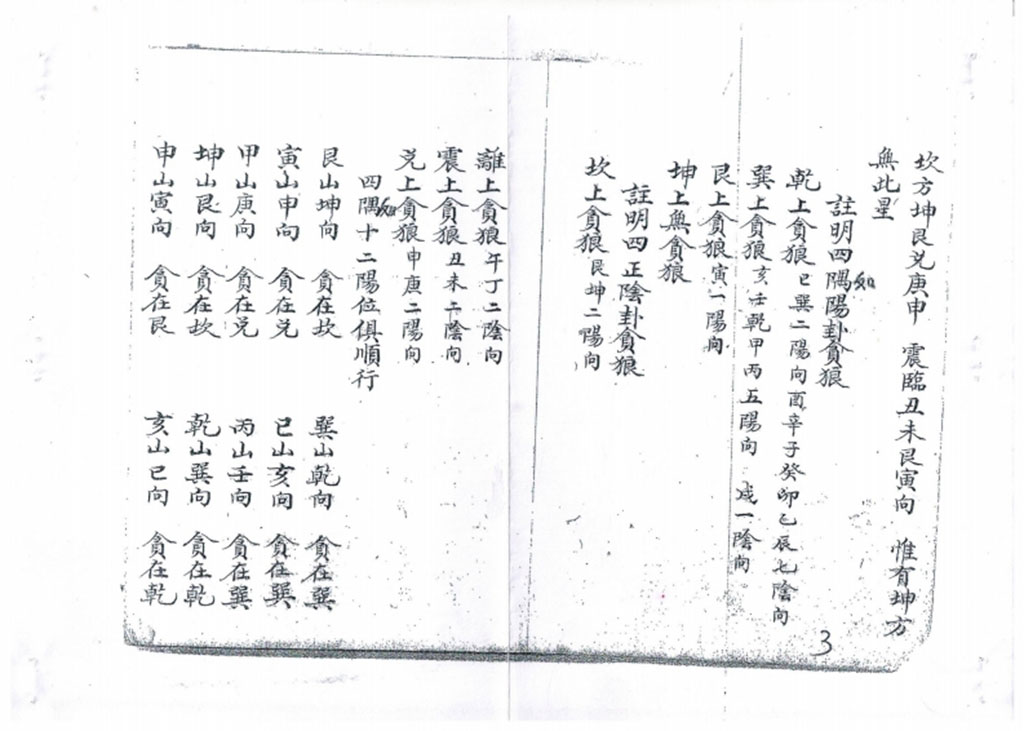 坎方坤艮兑庚申　震臨丑未艮寅向　惟有坤方
無此星
註明四隅如陽卦貪狼
乾上貪狼 巳巽二陽向酉辛子癸卯乙辰七陰向
巽上貪狼 亥壬乾甲丙五陽向　戌一陰向
艮上貪狼 寅一陽向
坤上無貪狼
註明四正陰卦貪狼
坎上貪狼 艮坤二陽向
離上貪狼 午丁二陰向
震上貪狼 丑未二陰向
兑上貪狼 申庚二陽向
四隅如十二陽位俱順行
艮山坤向　貪在坎　巽山乾向　貪在巽
寅山申向　貪在兑　巳山亥向　貪在巽
甲山庚向　貪在兑　丙山壬向　貪在巽
坤山艮向　貪在坎　乾山巽向　貪在乾
申山寅向　貪在艮　亥山巳向　貪在乾
3